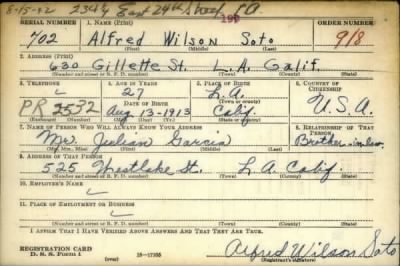 8-15-42 2344 East 29th Street, L.A.
199
SERIAL NUMBER 1. NAME (Print) ORDER NUMBER
702 Alfred Wilson Soto 918
(First) (Middle) (Last)
2. ADDRESS (Print)
630 Gillette St. L.A. Calif.
(Number and street or R. F. D. number) (Town) (County) (State)
3. TELEPHONE 4. AGE IN YEARS 5. PLACE OF BIRTH 6. COUNTRY OF CITIZENSHIP
27 L.A.
(Town or county)
PR 3532 DATE OF BIRTH
Aug 13-1913 Calif. U.S.A.
(Exchange) (Number) (Mo.) (Day) (Yr.) (State or country)
7. NAME OF PERSON WHO WILL ALWAYS KNOW YOUR ADDRESS 8. RELATIONSHIP OF THAT PERSON
Mrs Julian Garcia Brother-in-law
(Mr., Mrs., Miss) (First) (Middle) (Last)
9. ADDRESS OF THAT PERSON
525 Westlake St. L.A. Calif.
(Number and street or R. F. D. number) (Town) (County) (State)
10. EMPLOYER'S NAME
11. PLACE OF EMPLOYMENT OR BUSINESS
(Number and street or R. F. D. number) (Town) (County) (State)
I AFFIRM THAT I HAVE VERIFIED ABOVE ANSWERS AND THAT THEY ARE TRUE.
REGISTRATION CARD
D. S. S. FORM 1 16-17105 Alfred Wilson Soto
(Registrant's signature)